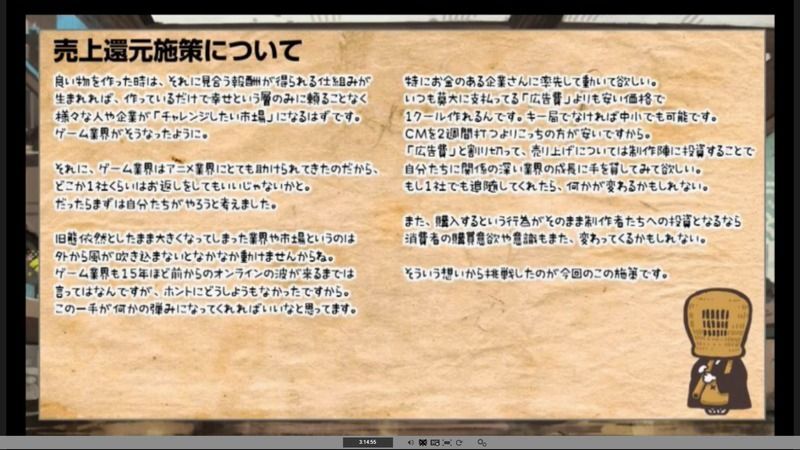 売上還元施策について
良い物を作った時は、それに見合う報酬が得られる仕組みが
生まれれば、作っているだけで幸せという層のみに頼ることなく
様々な人や企業が「チャレンジしたい市場」になるはずです。
ゲーム業界がそうなったように。
それに、ゲーム業界はアニメ業界にとても助けられてきたのだから、
どこか1社くらいはお返しをしてもいいじゃないかと。
だったらまずは自分たちがやろうと考えました。
旧態依然としたまま大きくなってしまった業界や市場というのは
外から風が吹き込まないとなかなか動けませんからね。
ゲーム業界も15年ほど前からのオンラインの波が来るまでは
言ってはなんですが、ホントにどうしようもなかったですから。
この一手が何かの弾みになってくれればいいなと思ってます。
特にお金のある企業さんに率先して動いて欲しい。
いつも莫大に支払ってる「広告費」よりも安い価格で
1クール作れるんです。キー局でなければ中小でも可能です。
CMを2週間打つよりこっちの方が安いですから。
「広告費」と割り切って、売り上げについては制作陣に投資することで
自分たちに関係の深い業界の成長に手を貸してみて欲しい。
もし1社でも追随してくれたら、何かが変わるかもしれない。
また、購入するという行為がそのまま制作者たちへの投資となるなら
消費者の購買意欲や意識もまた、変わってくるかもしれない。
そういう想いから挑戦したのが今回のこの施策です。
3:14:55